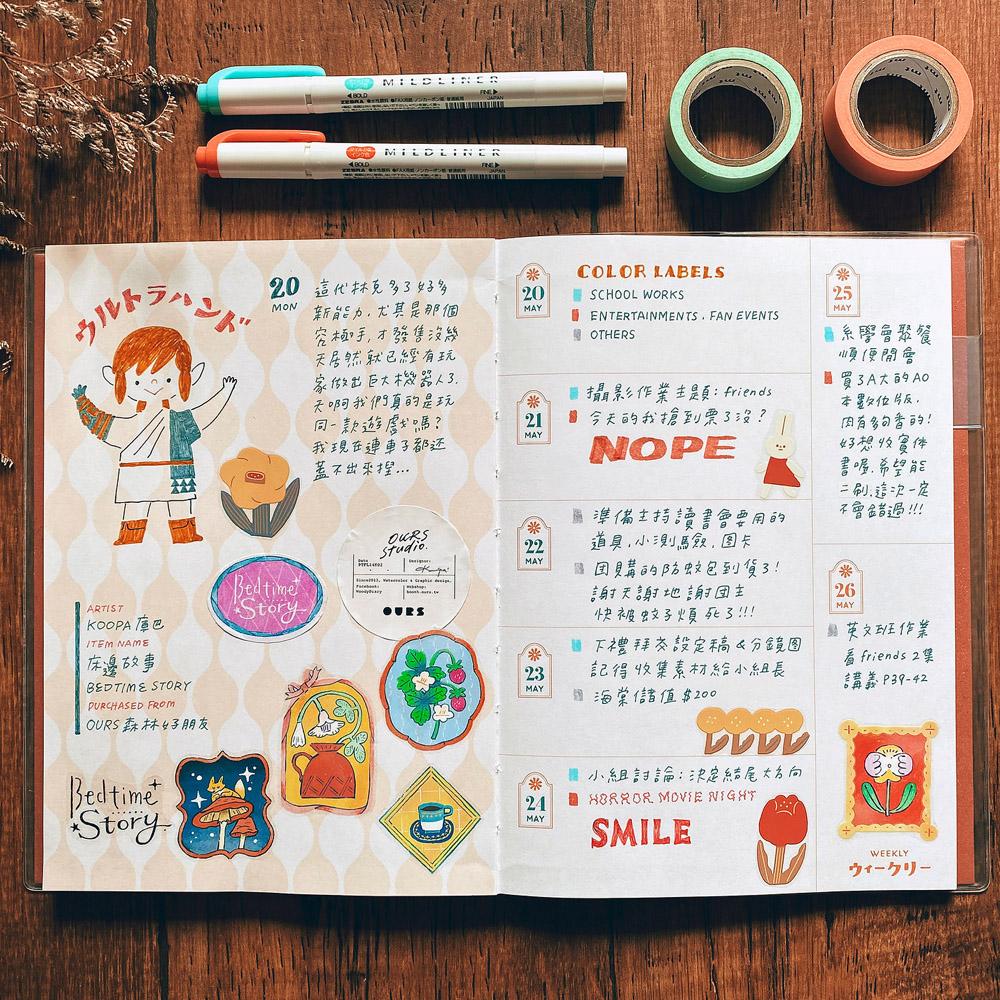 MILDLINER
BOLD
FINE
ZEBRA
JAPAN
MILDLINER
BOLD
FINE
ZEBRA
JAPAN
ウルトラハンド
20
MON
這代林克多了好多
新能力,尤其是那個
究極手,才發售沒幾
天居然就已經有玩
家做出巨大機器人了.
天啊我們真的是玩
同一款遊戲嗎?
我現在連車子都還
蓋不出來捏...
Bedtime
Story
OURS
studio.
Date
Designer:
Since2013, Watercolor & Graphic design.
Facebook:
WoodyDiary
Webshop:
booth-ours.tw
OURS
ARTIST
KOOPA 庫巴
ITEM NAME
床邊故事
BEDTIME STORY
PURCHASED FROM
OURS 森林好朋友
Bedtime
Story
20
MAY
COLOR LABELS
SCHOOL WORKS
ENTERTAINMENTS. FAN EVENTS
OTHERS
21
MAY
攝影作業主題:friends
今天的我搶到票了沒?
NOPE
22
MAY
準備主持讀書會要用的
道具.小測驗.圖卡
團購的防蚊包到貨了!
謝天謝地謝團主
快被蚊子煩死了!!!
23
MAY
下禮拜交設定稿&分鏡圖
記得收集素材給小組長
海棠儲值$200
24
MAY
小組討論:決定結尾大方向
HORROR MOVIE NIGHT
SMILE
25
MAY
系學會聚餐
順便開會
買了A大的A0
本數位版.
肉有夠香的!
好想收實體
書喔.希望能
二刷.這次一定
不會錯過!!!
26
MAY
英文班作業
看friends 2集
講義 P39-42
WEEKLY
ウィークリー